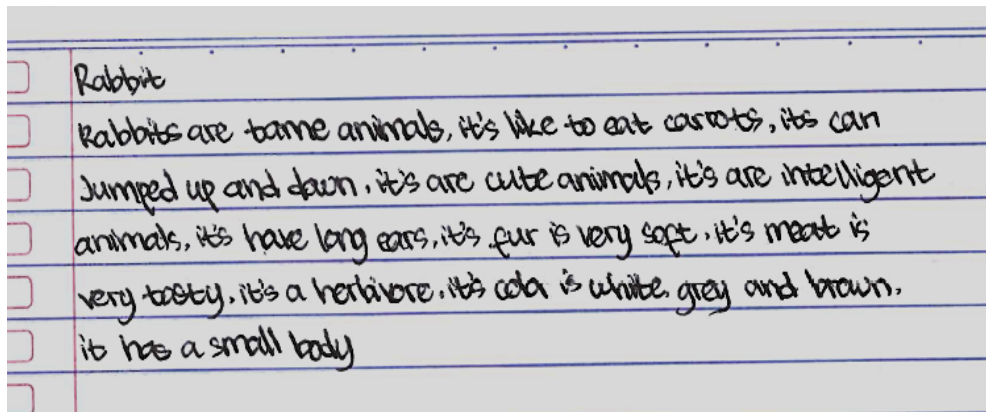 Rabbit
Rabbits are tame animals, it's like to eat carrots, its can
Jumped up and down, it's are cute animals, it's are intelligent
animals, it's have long ears, it's fur is very soft, it's meat is
very tasty, it's a herbivore, it's color is white, grey and brown,
it has a small body